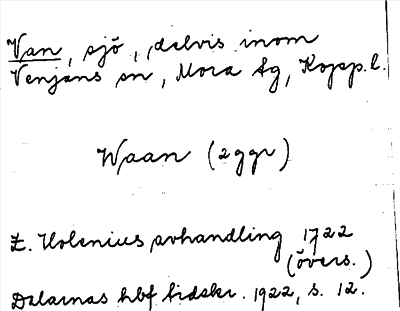 Van, sjö, delvis inom
Venjans sn, Mora tg, Kopp. l.
Waan (2 ggr)
E. Holenius avhandling 1722
(övers.)
Dalarnas hbf tidskr. 1922, s. 12.